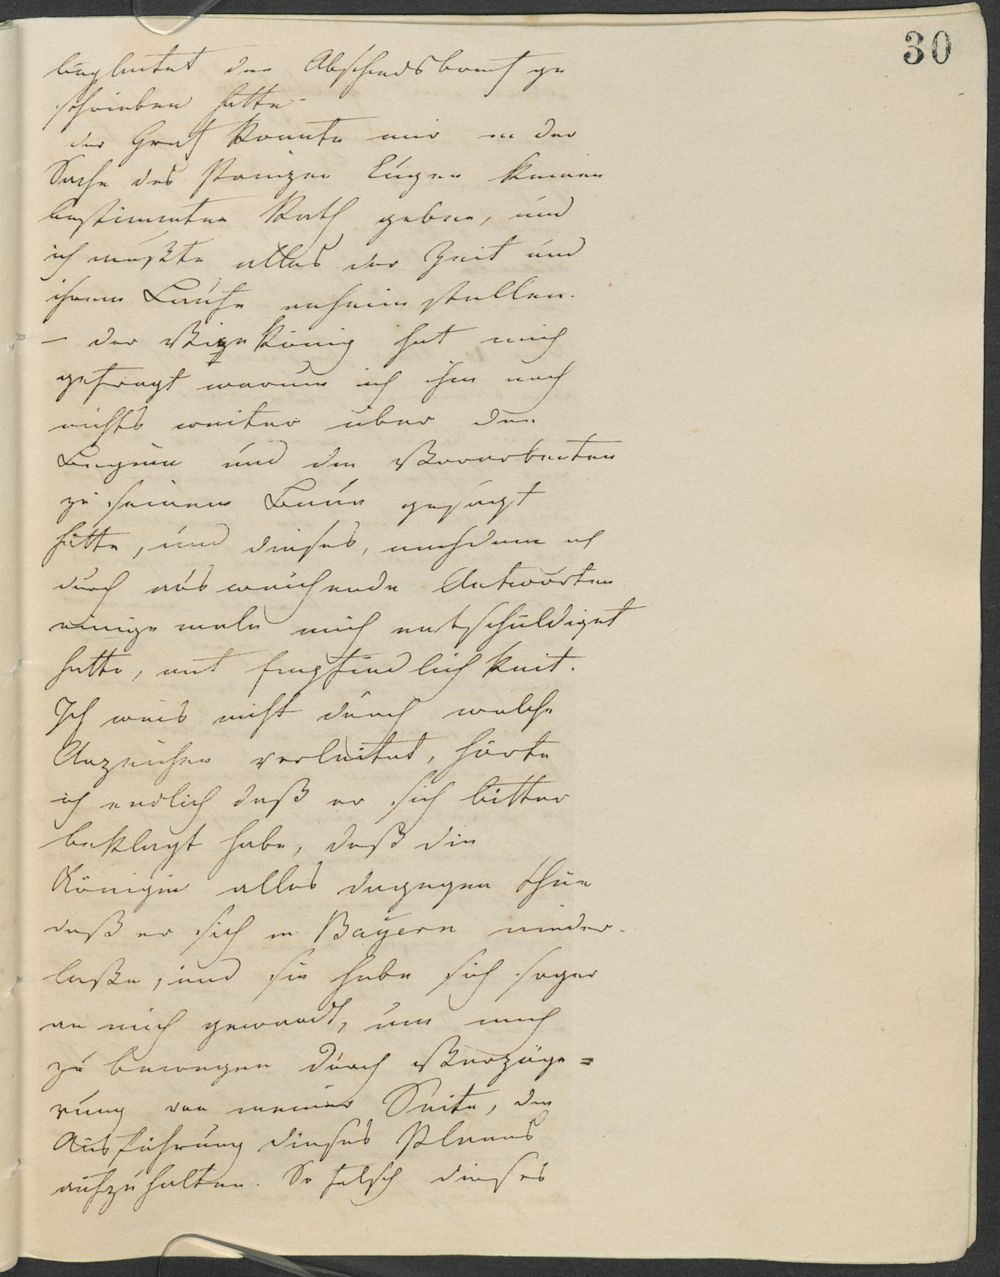 30
begleitet den Abschiedsbrief ge
schrieben hatte.
der Graf konnte mir in der
Sache des Prinzen Eugen keinen
bestimmten Rath geben, und
ich mußte alles der Zeit und
ihrem Laufe anheim stellen.
– der Vizekönig hat mich
gefragt warum ich ihm noch
nichts weiter über den
Beginn und den Vorarbeiten
zu seinem Baue gesagt
hätte, und dieses, nachdem ich
durch ausweichende Antworten
einige male mich entschuldiget
hatte, mit Empfindlichkeit.
Ich weis nicht durch welche
Anzeichen verleitet, hörte
ich endlich daß er sich bitter
beklagt habe, daß die
Königin alles dagegen thue
daß er sich in Bayern nieder-
laße, und sie habe sich sogar
an mich gewandt, um mich
zu bewegen durch Verzöge=
rung von meiner Seite, die
Ausführung dieses Planes
aufzuhalten. So falsch dieses